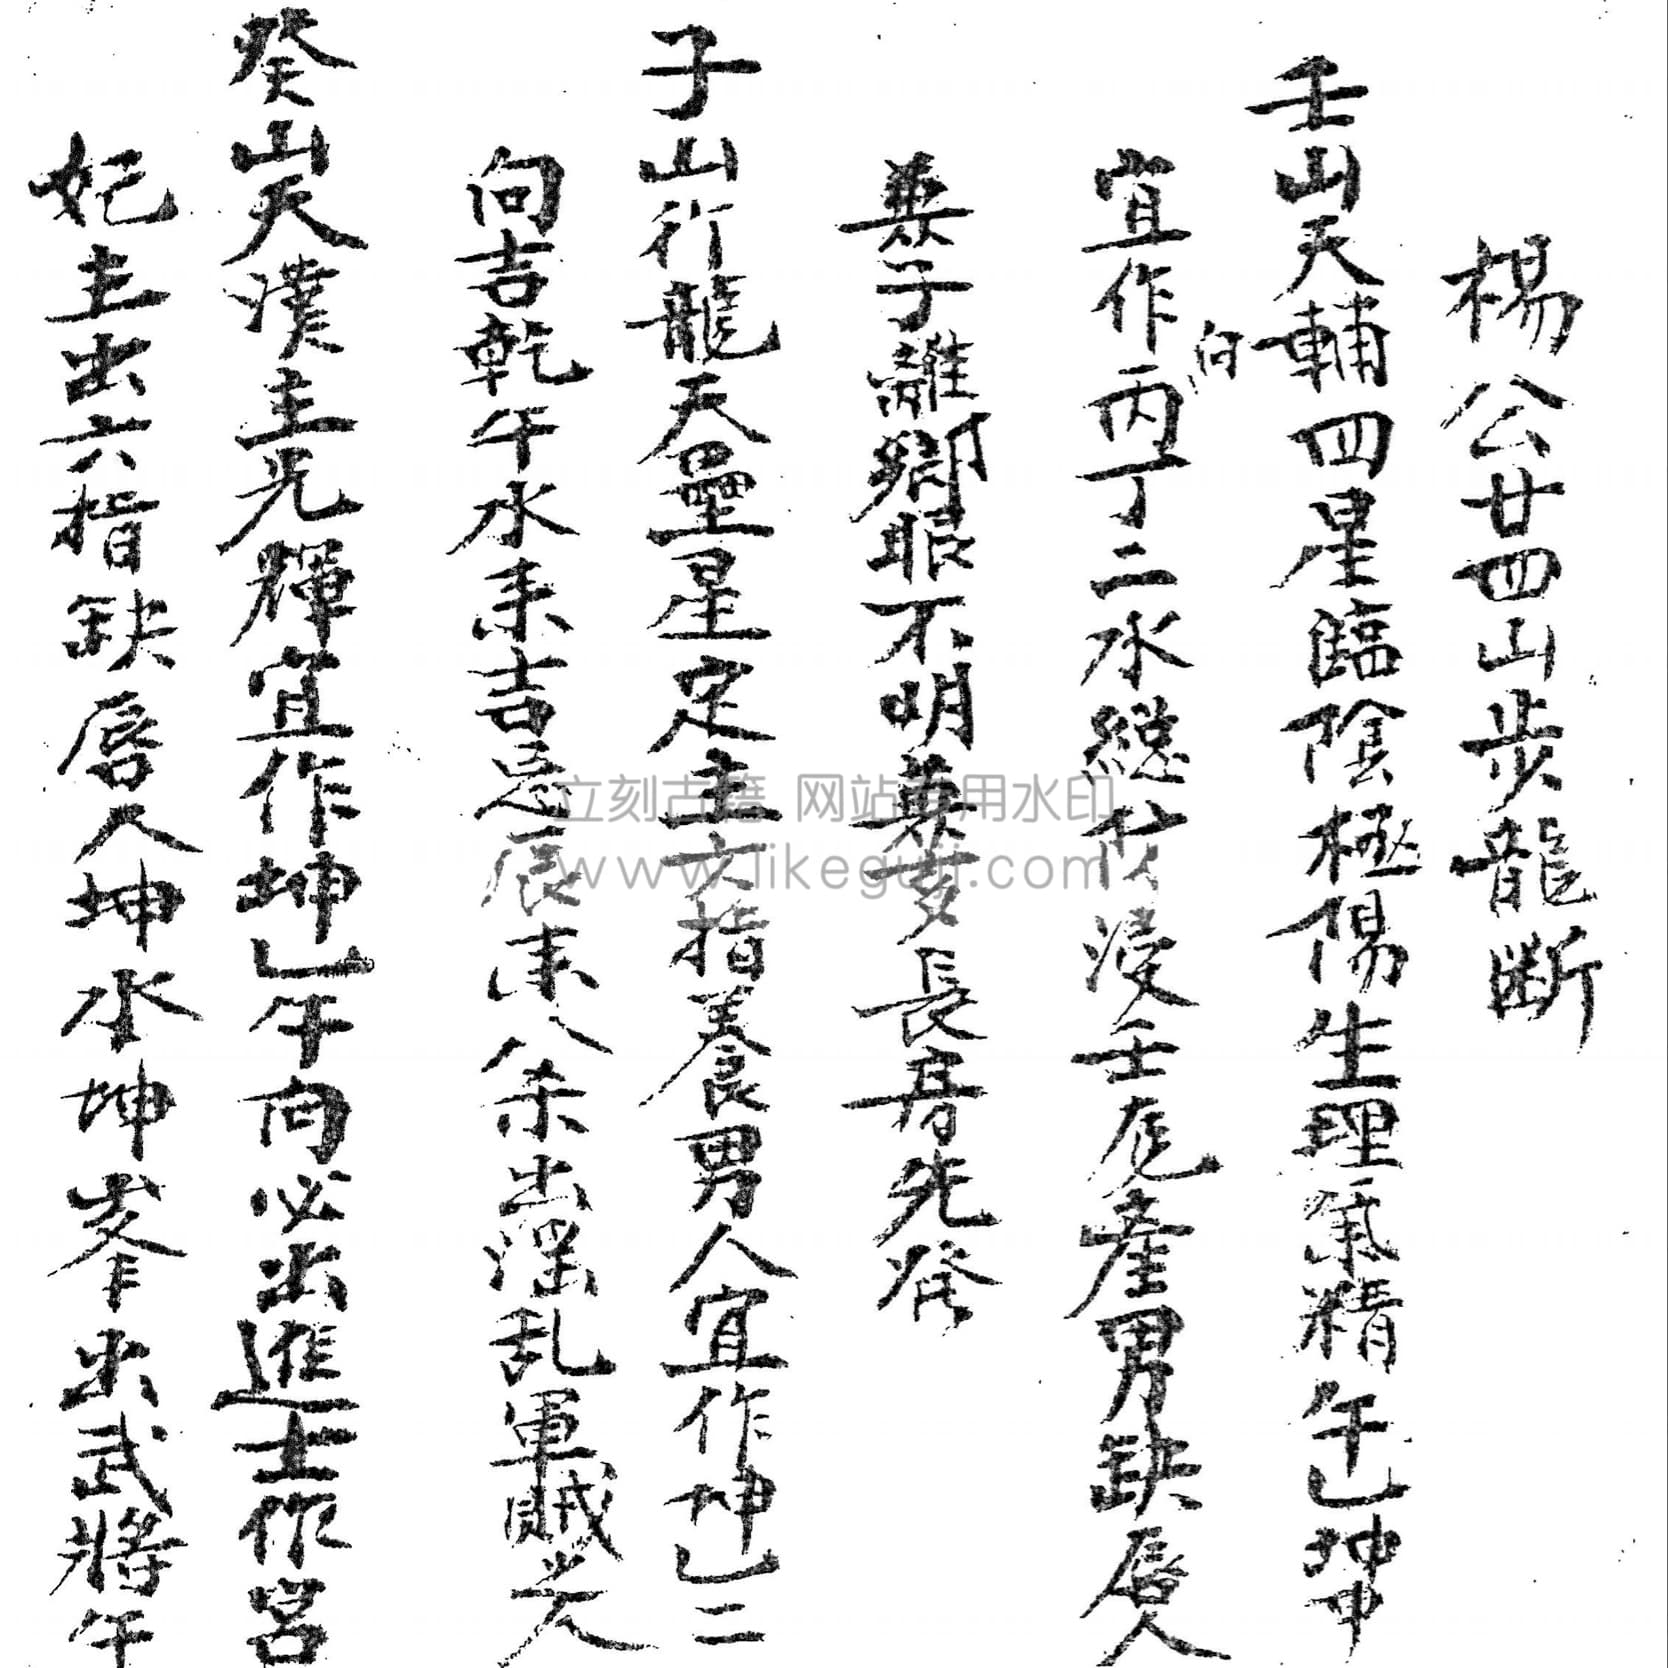 楊公廿四山步龍断
壬山天輔四星臨陰極陽生理氣精午乙坤
宜作丙丁二水總付浸壬尨產男缺唇人
向
兼子離鄉眼不明兼亥長房先發
子山行龍天壘星定主六指養男人宜作坤乙二
向吉乾午水来吉忌辰来八杀出淫乱軍賊
癸山天漢主光輝宜作坤乙午向必出進士作宮
妃主出六指缺唇人坤水坤峯出武將午
立刻古籍 网站专用水印
www.likeguji.com